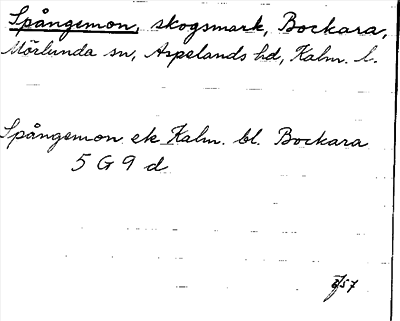 Spångemon, skogsmark, Bockara,
Mörlunda sn, Aspelands hd, Kalm. l.
Spångemon ek Kalm. bl. Bockara
5 G 9 d